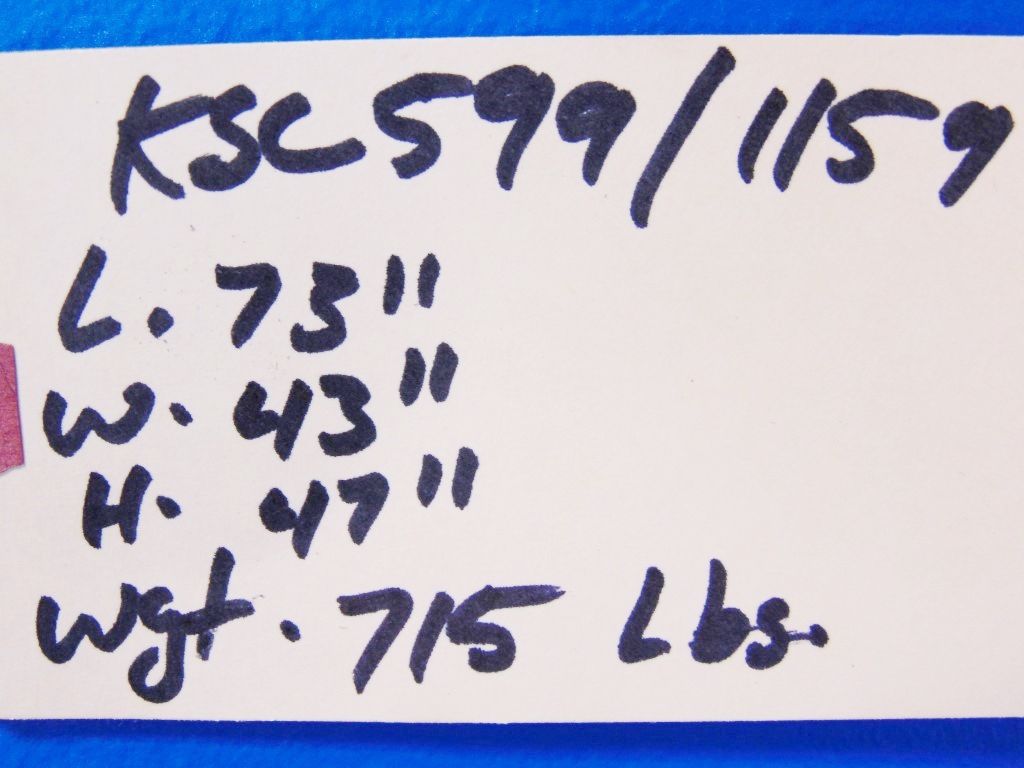 KSC599/1159
L. 73"
W. 43"
H. 47"
Wgt. 715 Lbs.